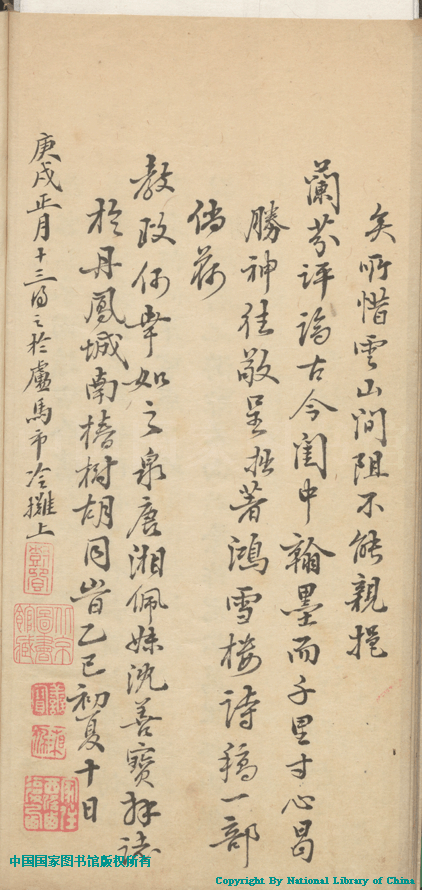 矣所惜雲山间阻不能親挹
蘭芬評論古今闺中翰墨而千里寸心曷
勝神往敬呈拙著鴻雪楼詩稿一部
倘荷
教政何幸如之泉唐湘佩妹沈善寶拜誌
於丹鳳城南椿樹胡同峕乙巳初夏十日
庚戌正月十三得之於盧馬市冷攤上
北京圖書館藏
中国国家图书馆版权所有
Copyright By National Library of China